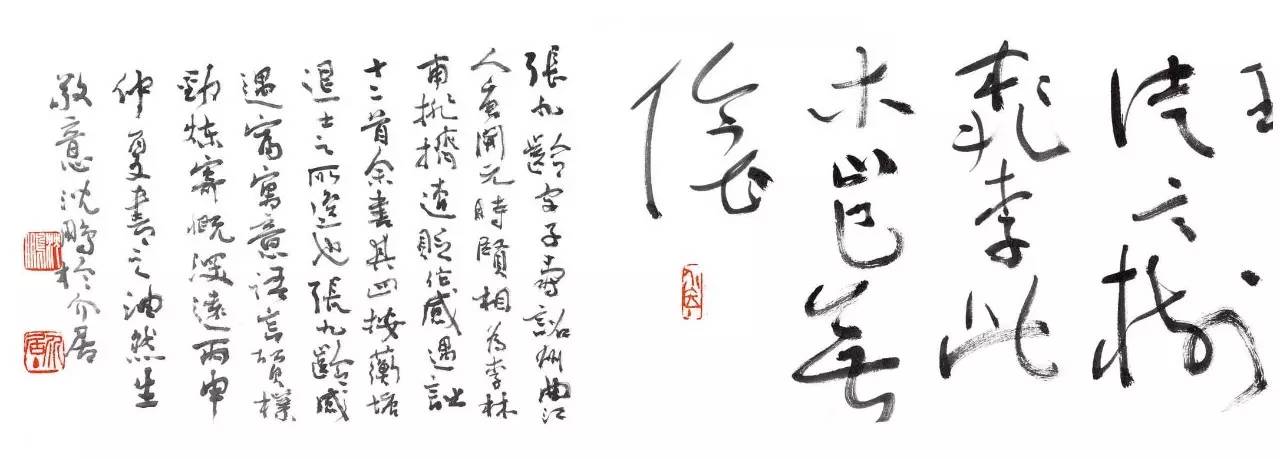 徒言樹
桃李此
木豈無
陰
張九齡字子壽韶州曲江
人唐開元時賢相為李林
甫排擠遭貶作感遇詩
十二首余書其四按蘅塘
退士之所選也張九齡感
遇富寓意語言質樸
勁煉寄慨深遠丙申
仲夏書之油然生
敬意沈鵬於介居
沈鵬
介居